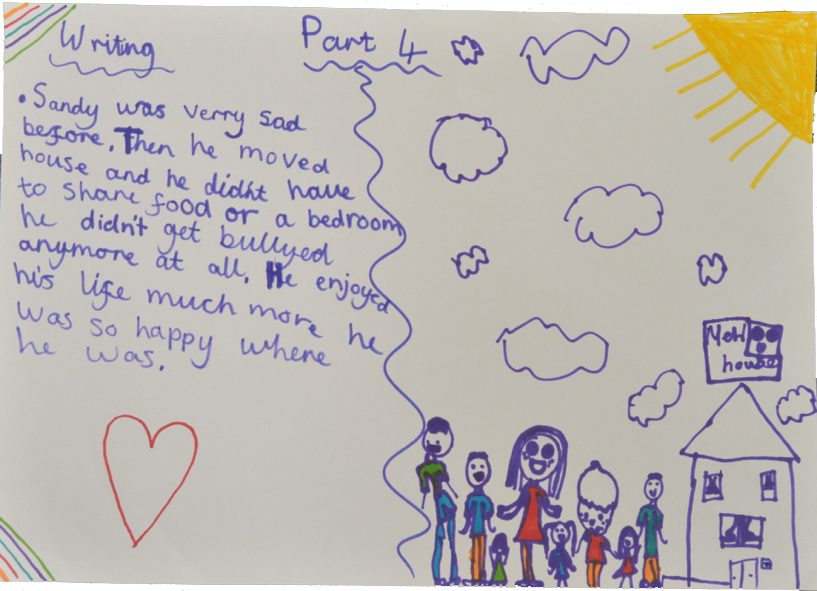 Writing
Part 4
• Sandy was verry sad
before. Then he moved
house and he didnt have
to share food or a bedroom
he didn't get bullyed
anymore at all. He enjoyed
his life much more he
was so happy where
he was.
New
house